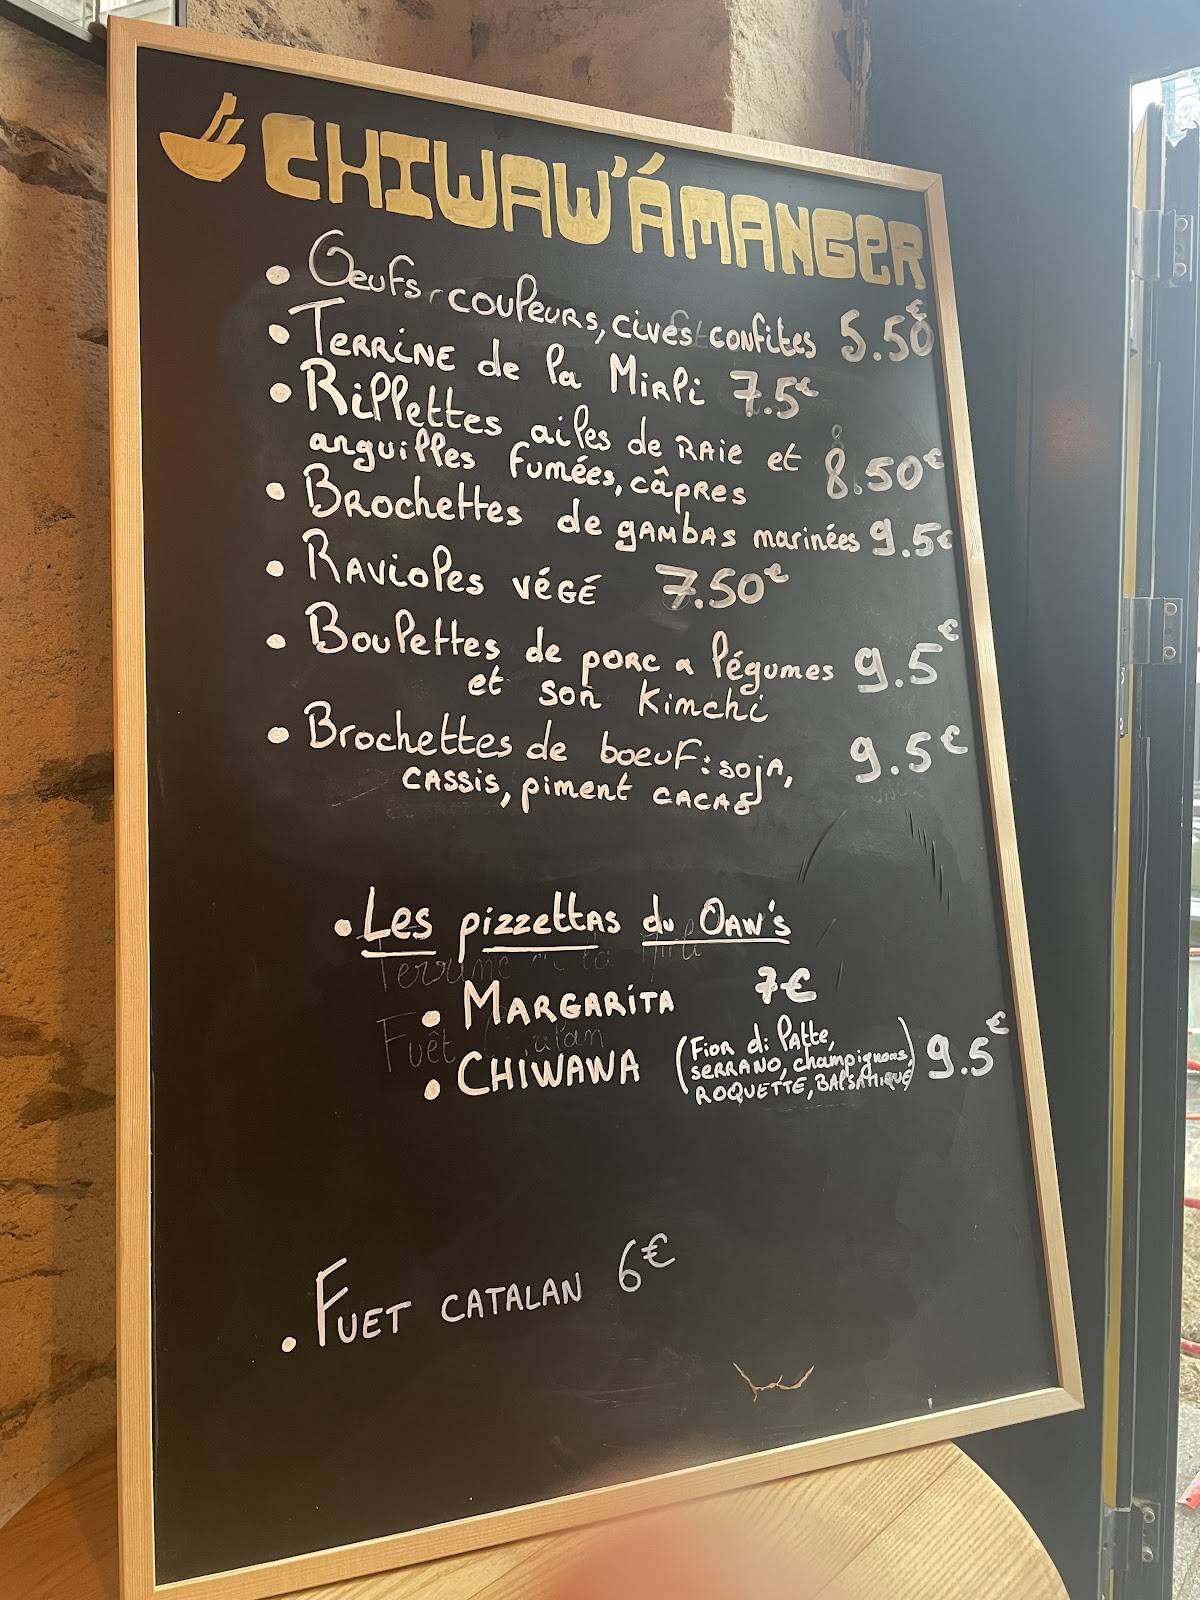 CHIWAW'ÁMANGER
• Oeufs, couleurs, cives confites 5.50€
• Terrine de la Mirli 7.5€
• Rillettes ailes de raie et 8.50€
anguilles fumées, câpres
• Brochettes de gambas marinées 9.5€
• Ravioles végé 7.50€
• Boulettes de porc a légumes 9.5€
et son Kimchi
• Brochettes de boeuf: soja, 9.5€
cassis, piment cacao
• Les pizzettas du Oaw's
Terrine de la Mirli
• MARGARITA 7€
Fuet Catalan
• CHIWAWA (Fior di latte, 9.5€
serrano, champignons,
roquette, balsamique)
• FUET CATALAN 6€